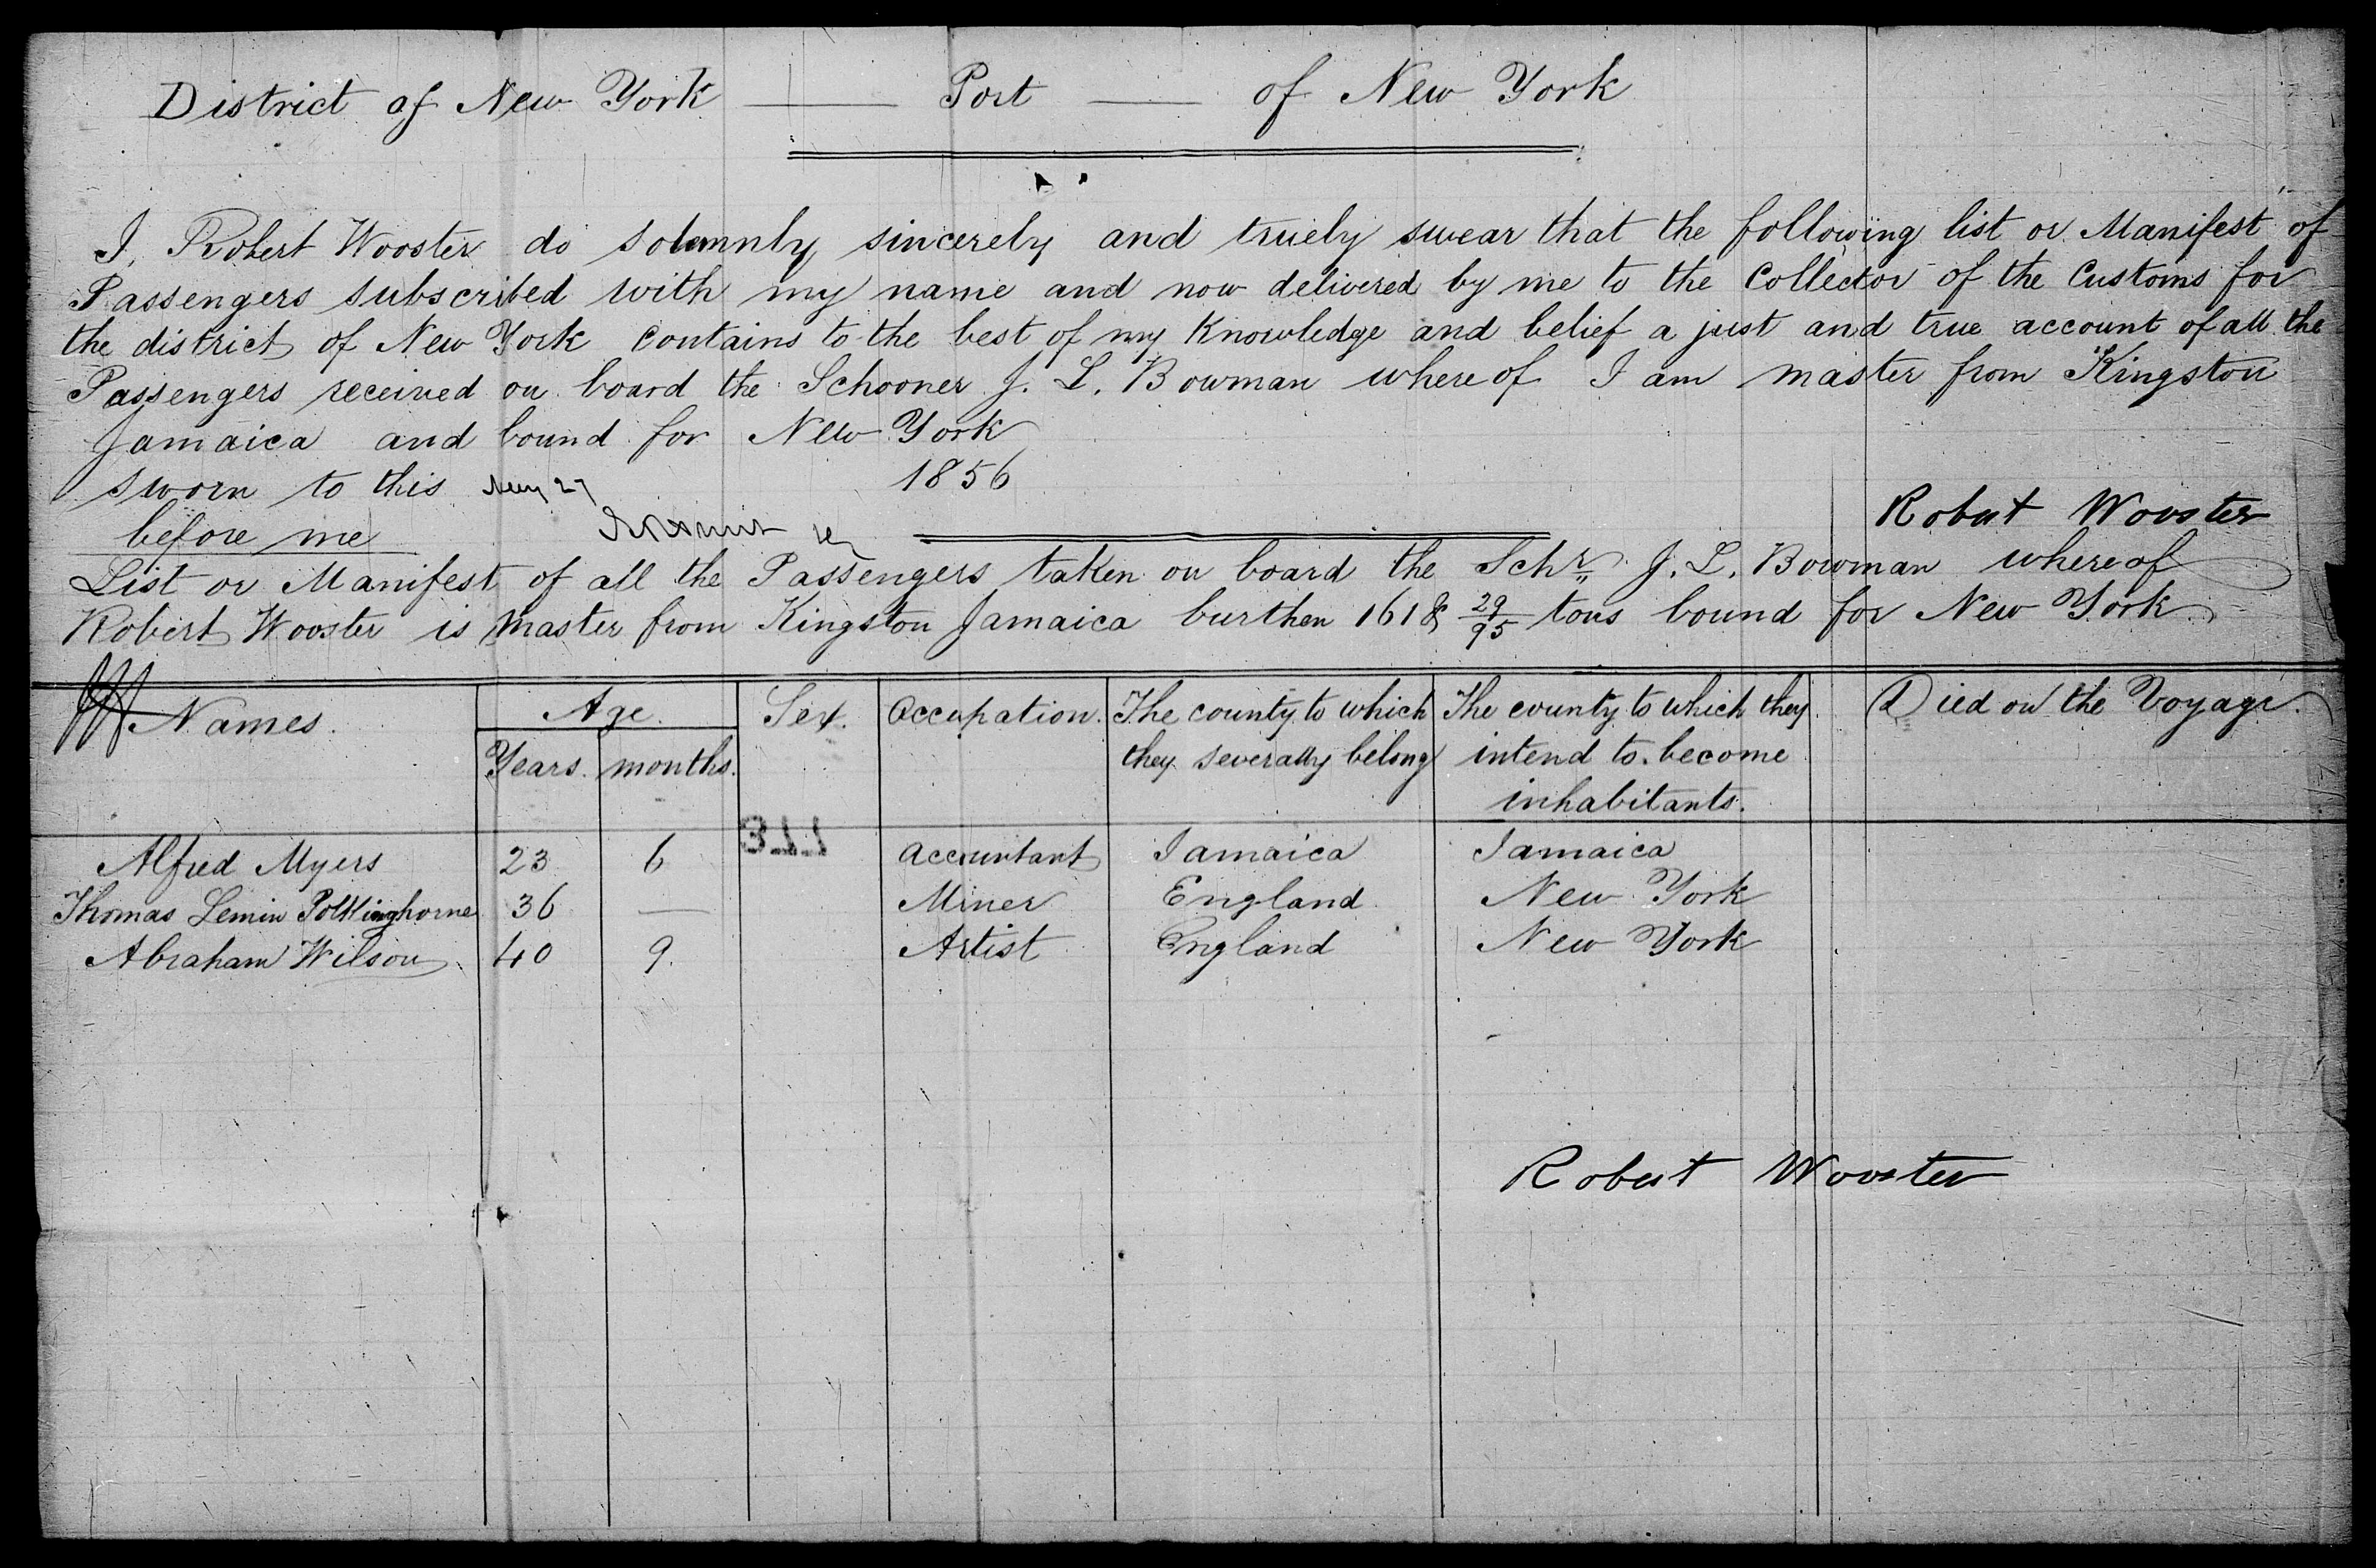 District of New York — Port — of New York
I, Robert Wooster do solemnly, sincerely and truely swear that the following list or Manifest of
Passengers subscribed with my name and now delivered by me to the Collector of the Customs for
the district of New York contains to the best of my Knowledge and belief a just and true account of all the
Passengers received on board the Schooner J. L. Bowman whereof I am master from Kingston
Jamaica and bound for New York
sworn to this May 27 1856
before me
Robert Wooster
List or Manifest of all the Passengers taken on board the Schr. J. L. Bowman whereof
Robert Wooster is Master from Kingston Jamaica burthen 161 & 29/95 tons bound for New York
Names. Age. Sex. Occupation. The county to which The county to which they Died on the Voyage.
Years. months. they severally belong intend to become
inhabitants.
377
Alfred Myers 23 6 Accountant Jamaica Jamaica
Thomas Lemin Polkinghorne 36 — Miner England New York
Abraham Wilson 40 9. Artist England New York
Robert Wooster